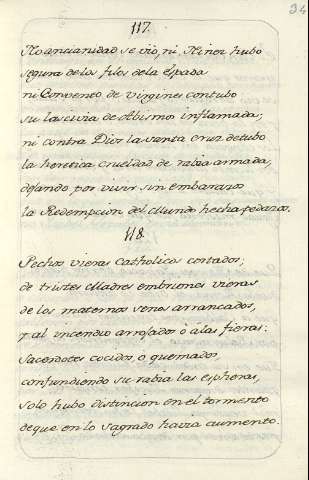 34
117.
No ancianidad se vio, ni Niñez hubo
segura de los filos de la Espada
ni Convento de Virgines contubo
su lascivia de Abismos inflamada;
ni contra Dios la santa Cruz detubo
la heretica crueldad de rabia armada,
dejando por vivir sin embarazos
la Redempcion del Mundo hecha pedazos.
118.
Pechos vieras Catholicos cortados;
de tristes Madres embriones vieras
de los maternos senos arrancados,
y al incendio arrojados ó álas fieras:
Sacerdotes cocidos, ó quemados,
confundiendo su rabia las espheras,
solo hubo distincion en el tormento
de que en lo sagrado havia aumento.